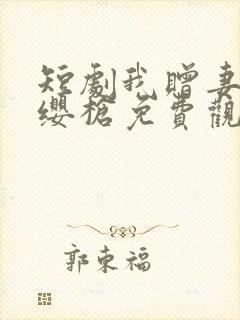 短劇我贈妻
纓槍免費觀
郭東福